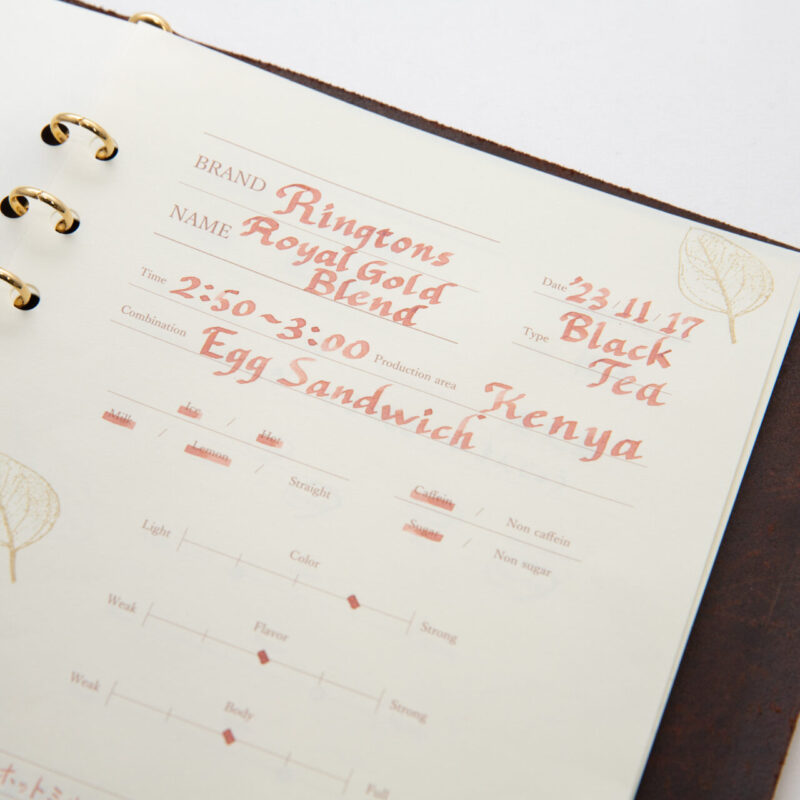 BRAND Ringtons
NAME Royal Gold
Blend
Date '23/11/17
Type Black
Tea
Time 2:50~3:00
Production area Kenya
Combination Egg Sandwich
Ice / Hot
Milk / Lemon / Straight
Caffein / Non caffein
Sugar / Non sugar
Color
Light Strong
Flavor
Weak Strong
Body
Weak Full
ホットミ